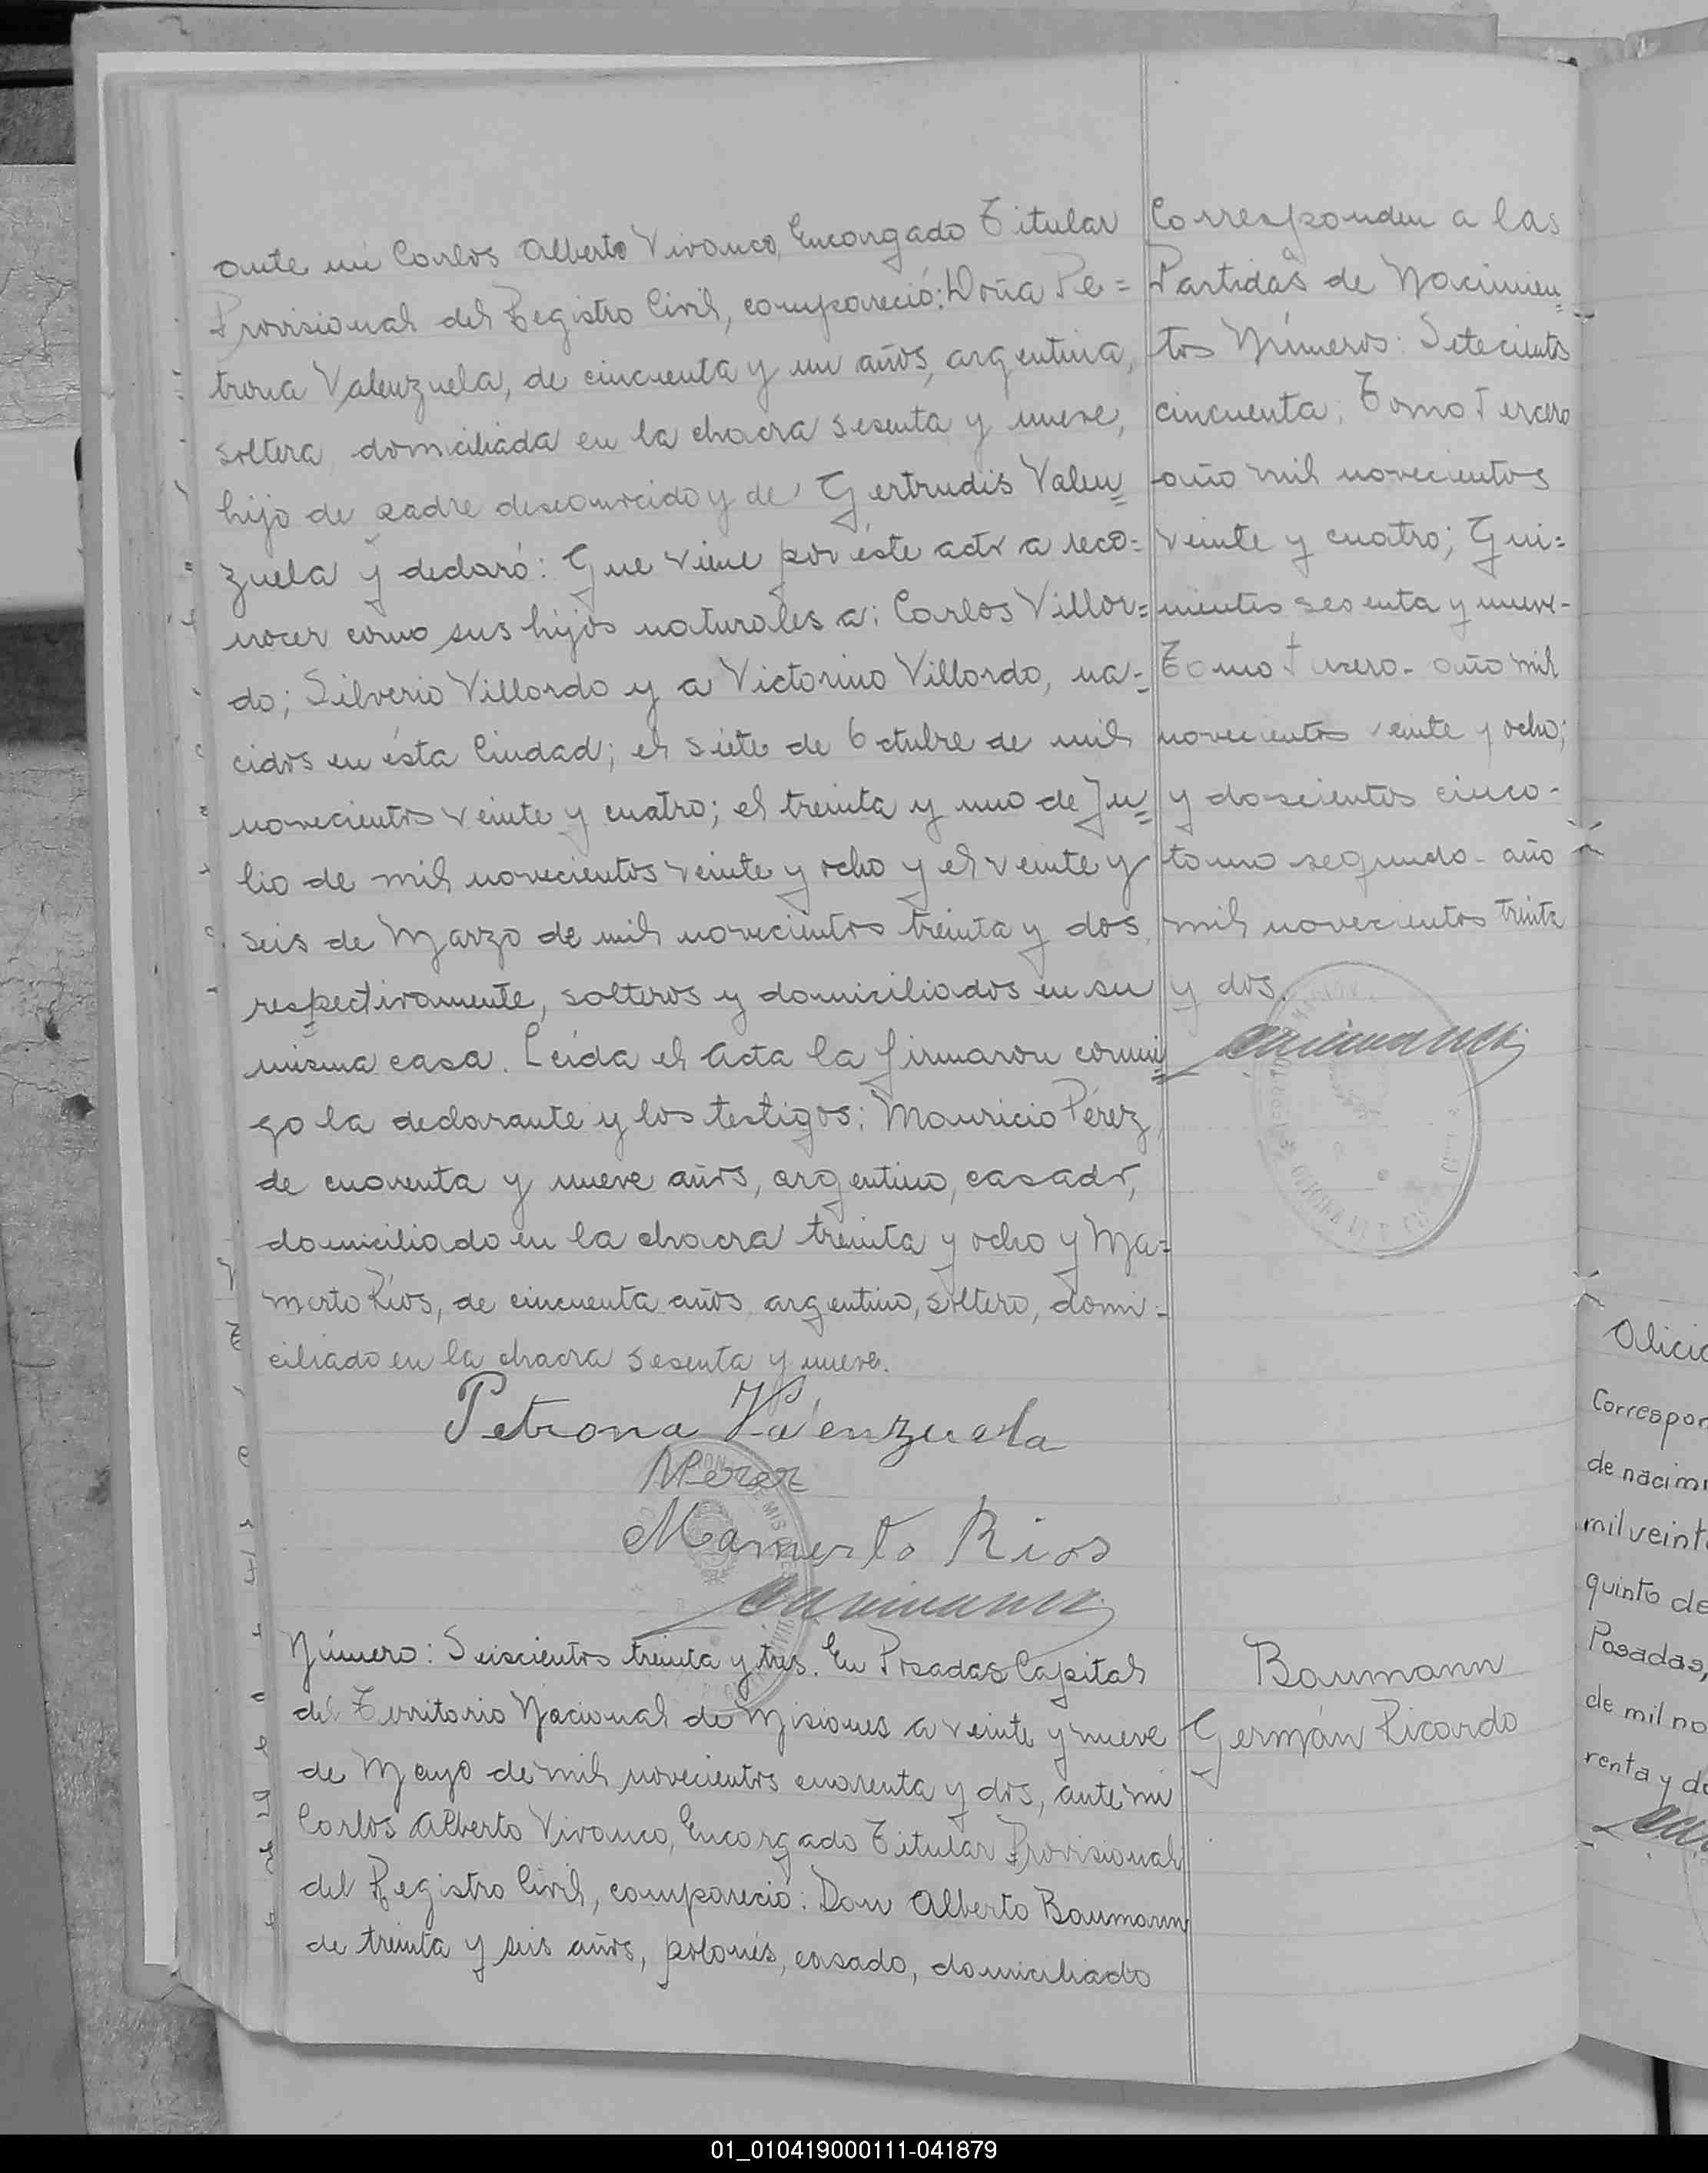 ante mi Carlos Alberto Vivanco, Encargado Titular
Provisional del Registro Civil, compareció: Doña Pe=
trona Valenzuela, de cincuenta y un años, argentina,
soltera domiciliada en la chacra sesenta y nueve,
hijo de padre desconocido y de Gertrudis Valen=
zuela y declaró: Que viene por éste acto a reco=
nocer como sus hijos naturales a: Carlos Villor=
do; Silverio Villordo y a Victorino Villordo, na=
cidos en ésta Ciudad; el siete de Octubre de mil
novecientos veinte y cuatro; el treinta y uno de Ju=
lio de mil novecientos veinte y ocho y el veinte y
seis de Marzo de mil novecientos treinta y dos
respectivamente, solteros y domiciliados en su
misma casa. Leída el Acta la firmaron conmi=
go la declarante y los testigos: Mauricio Pérez,
de cuarenta y nueve años, argentino, casado,
domiciliado en la chacra treinta y ocho y Ma=
merto Ríos, de cincuenta años argentino, soltero, domi=
ciliado en la chacra sesenta y nueve.
Petrona Valenzuela
MPerez
Mamerto Rios
Número: Seiscientos treinta y tres. En Posadas Capital
del Territorio Nacional de Misiones a veinte y nueve
de Mayo de mil novecientos cuarenta y dos, ante mi
Carlos Alberto Vivanco, Encargado Titular Provisional
del Registro Civil, compareció: Don Alberto Baumann
de treinta y seis años, polonés, casado, domiciliado
Corresponden a las
Partidas de Nacimien=
tos Números: Setecientos
cincuenta; Tomo Tercero
año mil novecientos
veinte y cuatro; Qui=
nientos sesenta y nueve-
Tomo Tercero- año mil
novecientos veinte y ocho;
y doscientos cinco-
tomo segundo- año
mil novecientos treinta
y dos.
Baumann
Germán Ricardo
Alicia
Correspon
de nacimi
mil veint
quinto de
Posadas,
de mil no
renta y d
01_010419000111-041879